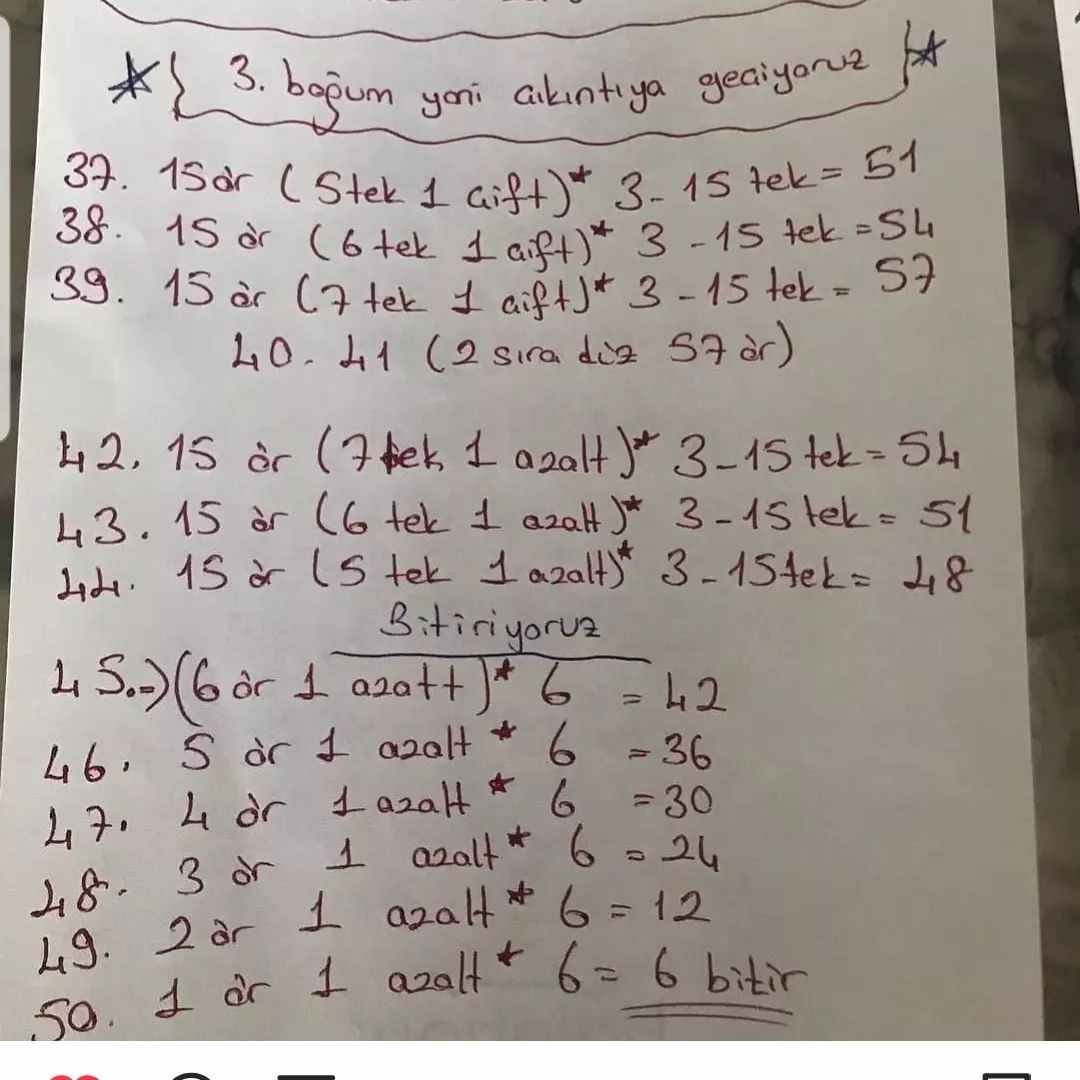 3. boğum yani çıkıntıya geçiyoruz
37. 15 ör (5 tek 1 çift)* 3 - 15 tek = 51
38. 15 ör (6 tek 1 çift)* 3 - 15 tek = 54
39. 15 ör (7 tek 1 çift)* 3 - 15 tek = 57
40. 41 (2 sıra düz 57 ör)
42. 15 ör (7 tek 1 azalt)* 3 - 15 tek = 54
43. 15 ör (6 tek 1 azalt)* 3 - 15 tek = 51
44. 15 ör (5 tek 1 azalt)* 3 - 15 tek = 48
Bitiriyoruz
45. => (6 ör 1 azalt)* 6 = 42
46. 5 ör 1 azalt * 6 = 36
47. 4 ör 1 azalt * 6 = 30
48. 3 ör 1 azalt * 6 = 24
49. 2 ör 1 azalt * 6 = 12
50. 1 ör 1 azalt * 6 = 6 bitir